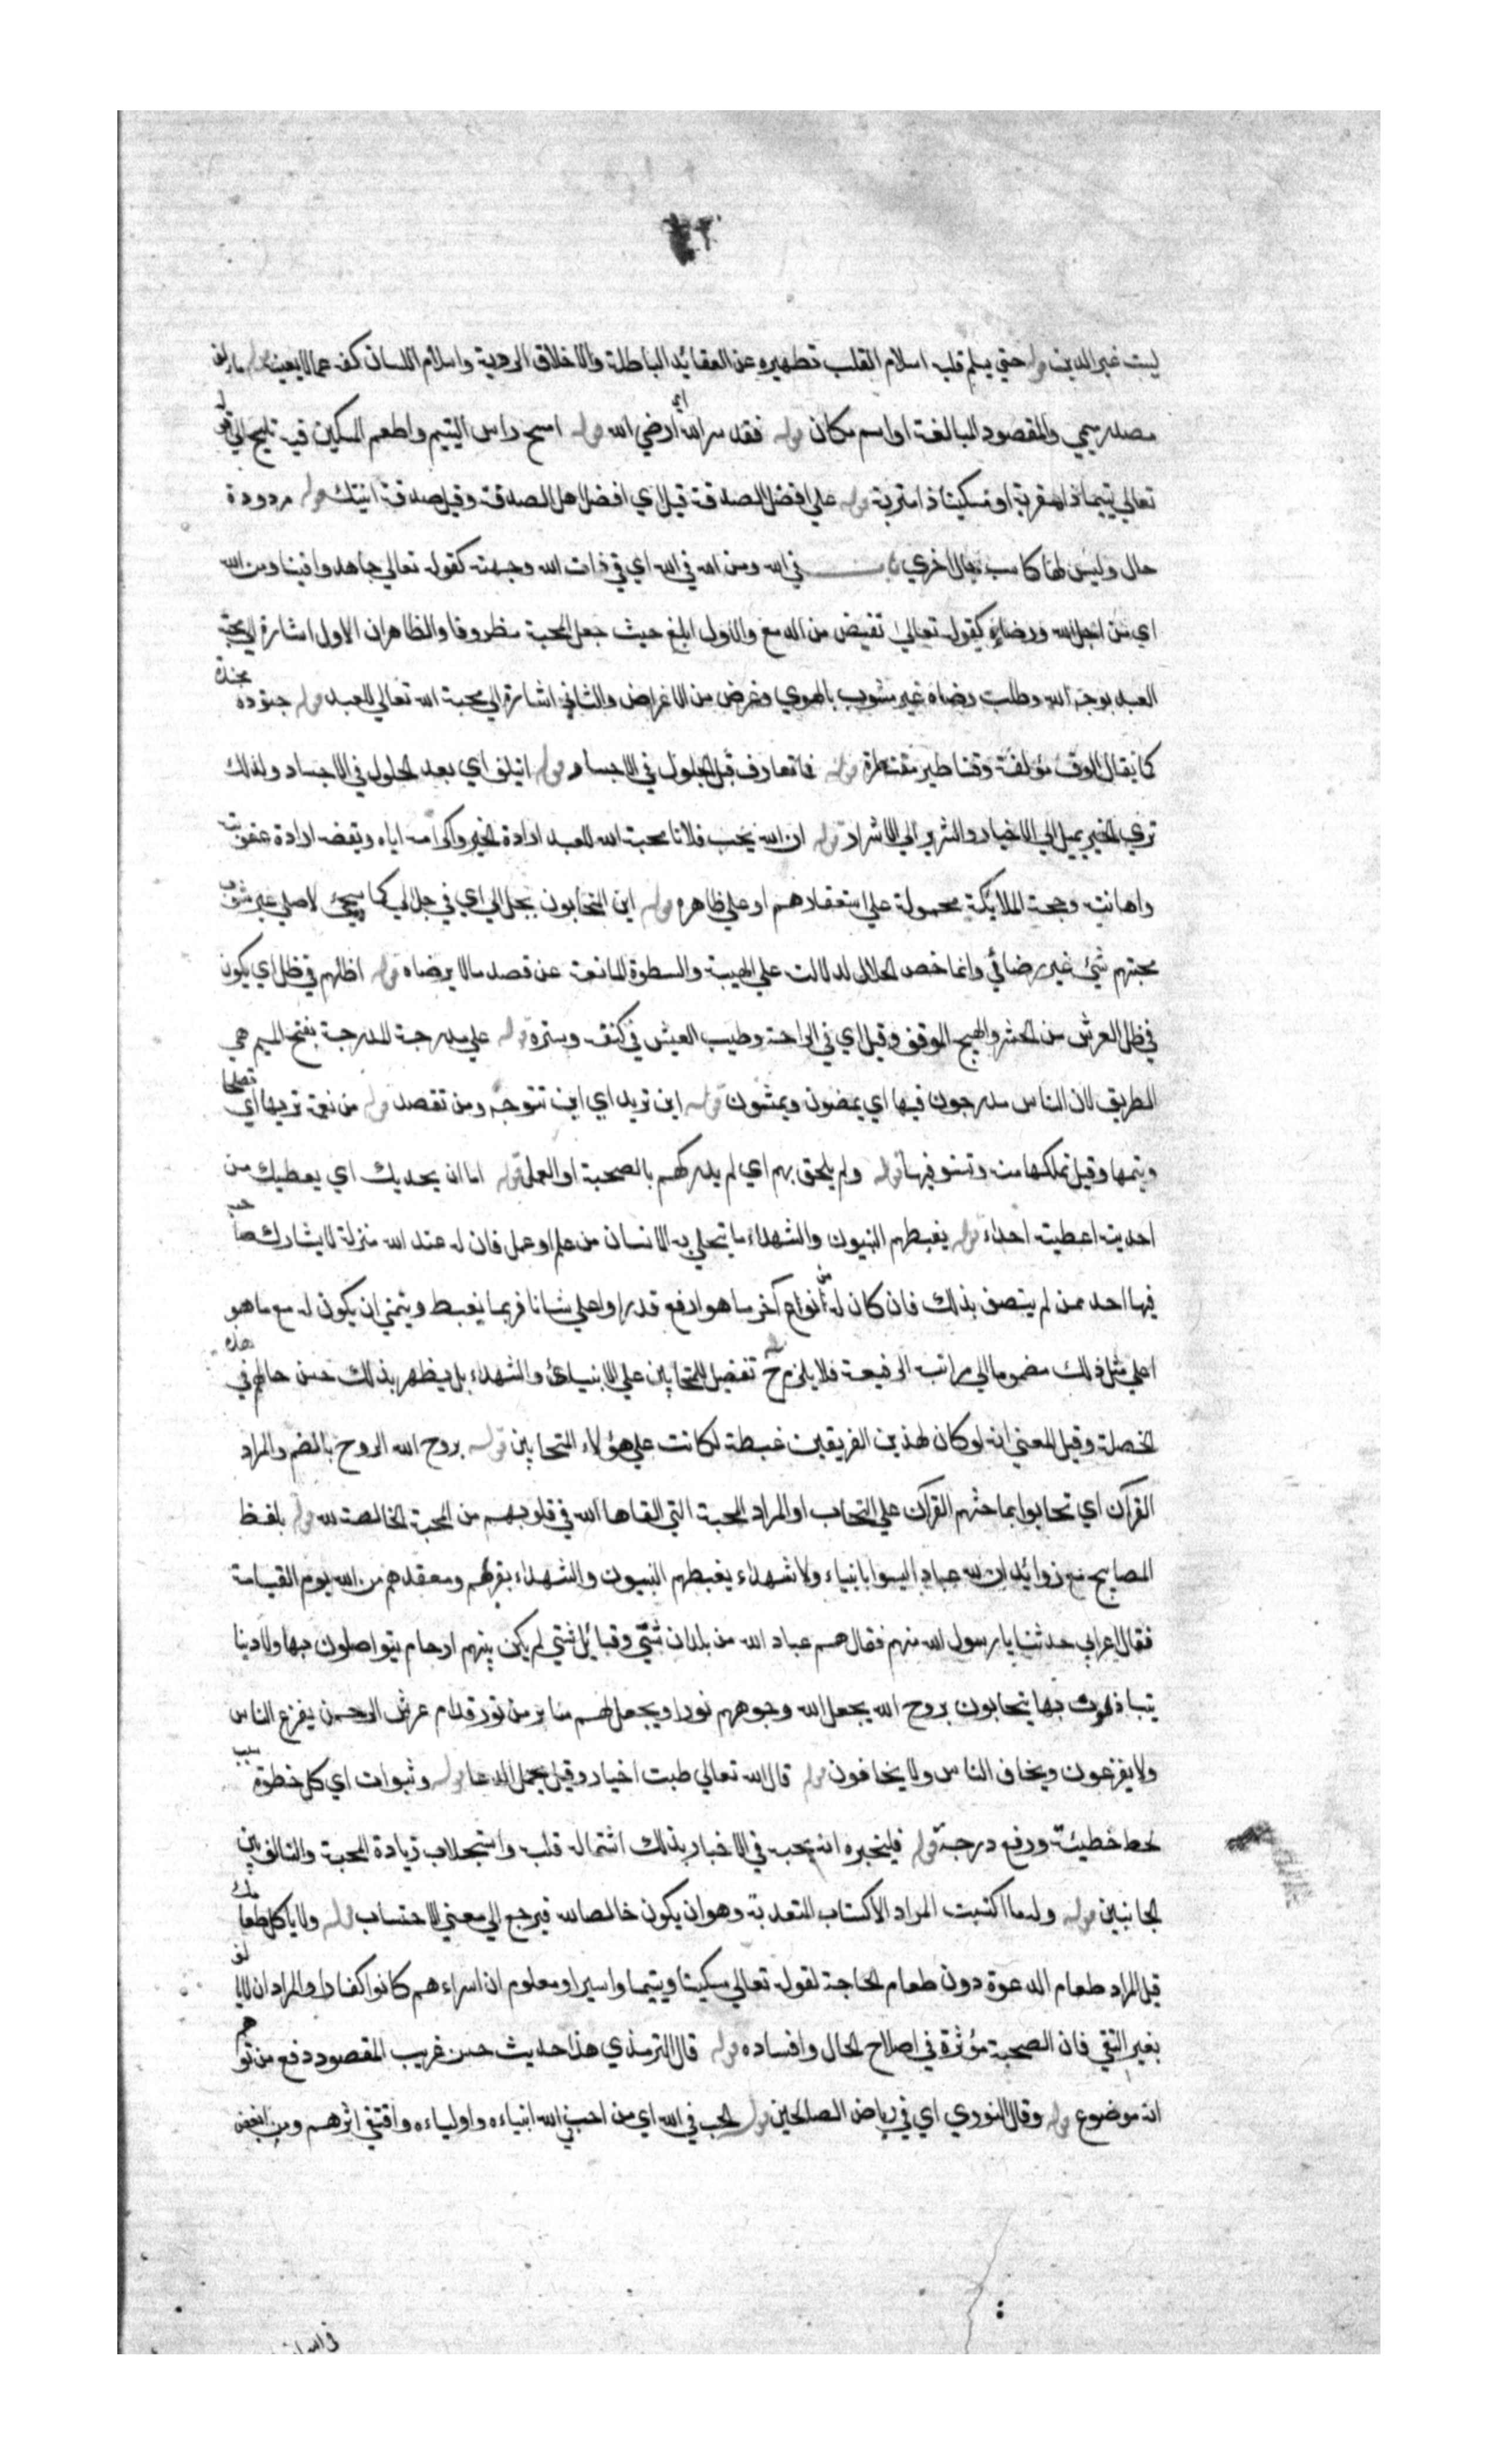 ليست غير الدين قوله حتي يسلم قلبه اسلام القلب تطهيره عن العقائد الباطلة والاخلاق الردية واسلام اللسان كفه عما لا يعنيه قوله مالف
مصدر ميمي والمقصود المبالغة او اسم مكان قوله فقد سر الله اي ارضي الله قوله امسح راس اليتيم واطعم المسكين فيه تلميح الي قوله
تعالي يتيما ذا مقربة او مسكينا ذا متربة قوله علي افضل الصدقة قيل اي افضل اهل الصدقة وقيل صدقة ابنتك قوله مردودة
حال وليس لها كاسب حال اخري في الله ومن الله في الله اي في ذات الله وجهته كقوله تعالي جاهدوا فينا ومن الله
اي من اجل الله ورضائه كقوله تعالي تفيض من الدمع والاول ابلغ حيث جعل المحبة مظروفا والظاهر ان الاول اشارة الي محبة
العبد بوجه الله وطلب رضاه غير مشوب بالهوي وغرض من الاغراض والثاني اشارة الي محبة الله تعالي للعبد قوله جنود مجندة
كما يقال الوف مؤلفة وقناطير مقنطرة قوله فما تعارف قبل الحلول في الاجساد قوله ائتلف اي بعد الحلول في الاجساد ولذلك
تري الخير يميل الي الاخيار والشرير الي الاشرار قوله ان الله يحب فلانا محبة الله للعبد ارادة الخير واكرامه اياه وبغضه ارادة عقوبته
واهانته ومحبة الملائكة محمولة علي استغفارهم او علي ظاهره قوله اين المتحابون بجلالي اي في جلالي كما سيجئ لاصلي غير مشوب
محبتهم شئ غير رضائي وانما خص الجلال لدلالته علي الهيبة والسطوة المانعة عن قصد مالا يرضاه قوله اظلهم في ظل اي يكون
في ظل العرش من الحشر والهيج الموقف وقيل اي في الراحة وطيب العيش في كنفه وستره قوله علي مدرجة المدرجة بفتح الميم هي
الطريق لان الناس مدرجون فيها اي يمضون ويمشون قوله اين تريد اي اين تتوجه ومن تقصد قوله من نعمة تربها اي تصلحها
ويتمها وقيل تملكها منه وتستوفيها قوله ولم يلحق بهم اي لم يدركهم بالصحبة او العمل قوله اما ان يحذيك اي يعطيك من
احذيته اعطيته احذاء قوله يغبطهم النبيون والشهداء ما يتحلي به الانسان من علم او عمل فان له عند الله منزلة لا يشارك صاحبه
فيها احد ممن لم يتصف بذلك فان كان له من أنواع آخر ما هو ارفع قدرا واعلي شانا فربما يغبط ويتمني ان يكون له مع ما هو
اعلي مثل ذلك مضموما الي مراتب الرفيعة فلا يلزم ح تفضيل المتحابين علي الانبياء والشهداء بل يظهر بذلك حسن حالهم في هذه
الخصلة وقيل المعني انه لو كان لهذين الفريقين غبطة لكانت علي هؤلاء المتحابين قوله بروح الله الروح بالضم والمراد
القرآن اي تحابوا بما حثهم القرآن علي التحاب او المراد المحبة التي القاها الله في قلوبهم من المحبة الخالصة لله قوله بلفظ
المصابيح مع زوائد ان لله عبادا ليسوا بانبياء ولا شهداء يغبطهم النبيون والشهداء بقربهم ومقعدهم من الله يوم القيامة
فقال اعرابي حدثنا يا رسول الله منهم فقال هم عباد الله من بلدان شتي وقبائل شتي لم يكن بينهم ارحام يتواصلون بها ولا دنيا
يتباذلون بها يتحابون بروح الله يجعل الله وجوههم نورا ويجعل لهم منابر من نور قدام عرش الرحمن يفزع الناس
ولا يفزعون ويخاف الناس ولا يخافون قوله قال الله تعالي طبت اخبار وقيل يحتمل الدعا قوله وتبوات اي كل خطوة سبب
لحط خطيئة ورفع درجة قوله فليخبره انه يحب في الاخبار بذلك اشتماله قلبه واستجلاب زيادة المحبة والتالف بين
الجانبين قوله ولك ما اكتسبت المراد الاكتساب المتعدبة وهو ان يكون خالصا لله فيرجع الي معني الاحتساب قوله ولا ياكل طعامك
قيل المراد طعام الدعوة دون طعام الحاجة لقوله تعالي مسكينا ويتيما واسيرا ومعلوم ان اسراءهم كانوا كفارا والمراد ان لا يالف
بغير التقي فان الصحبة مؤثرة في اصلاح الحال وافساده قوله قال الترمذي هذا حديث حسن غريب المقصود دفع من توهم
انه موضوع قوله وقال النووي اي في رياض الصالحين قوله الحب في الله اي من احب في الله انبياءه واولياءه واقتفي اثرهم ومن ابغض